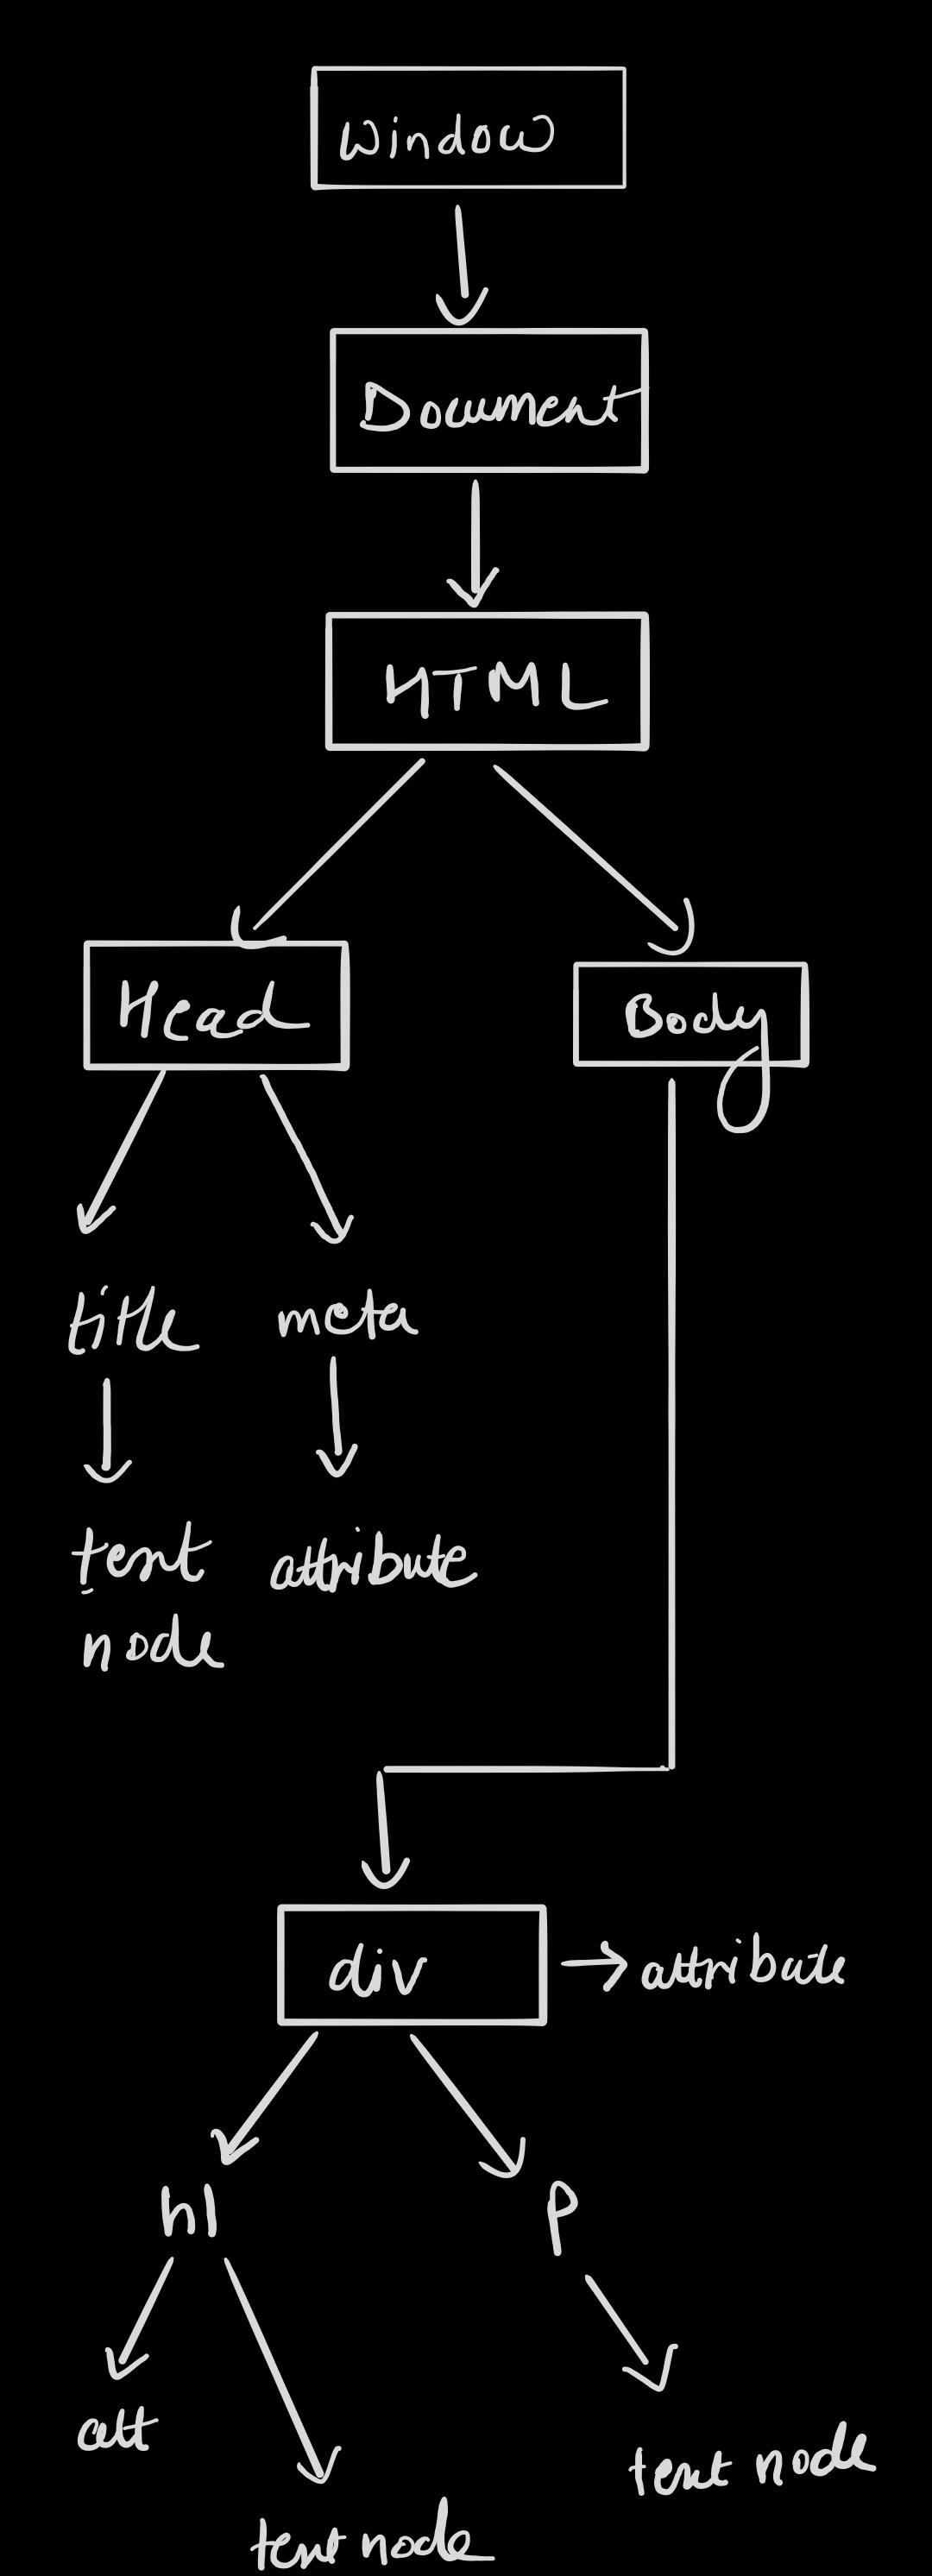 Window
Document
HTML
Head
Body
title
meta
text
node
attribute
div
attribute
h1
p
att
text node
text node